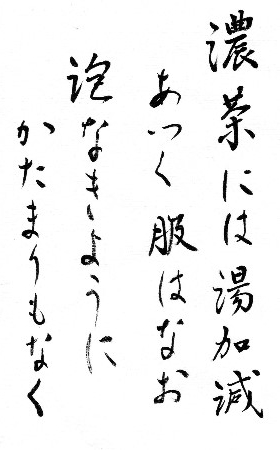 濃茶には湯加減
あつく服はなお
泡なきように
かたまりもなく